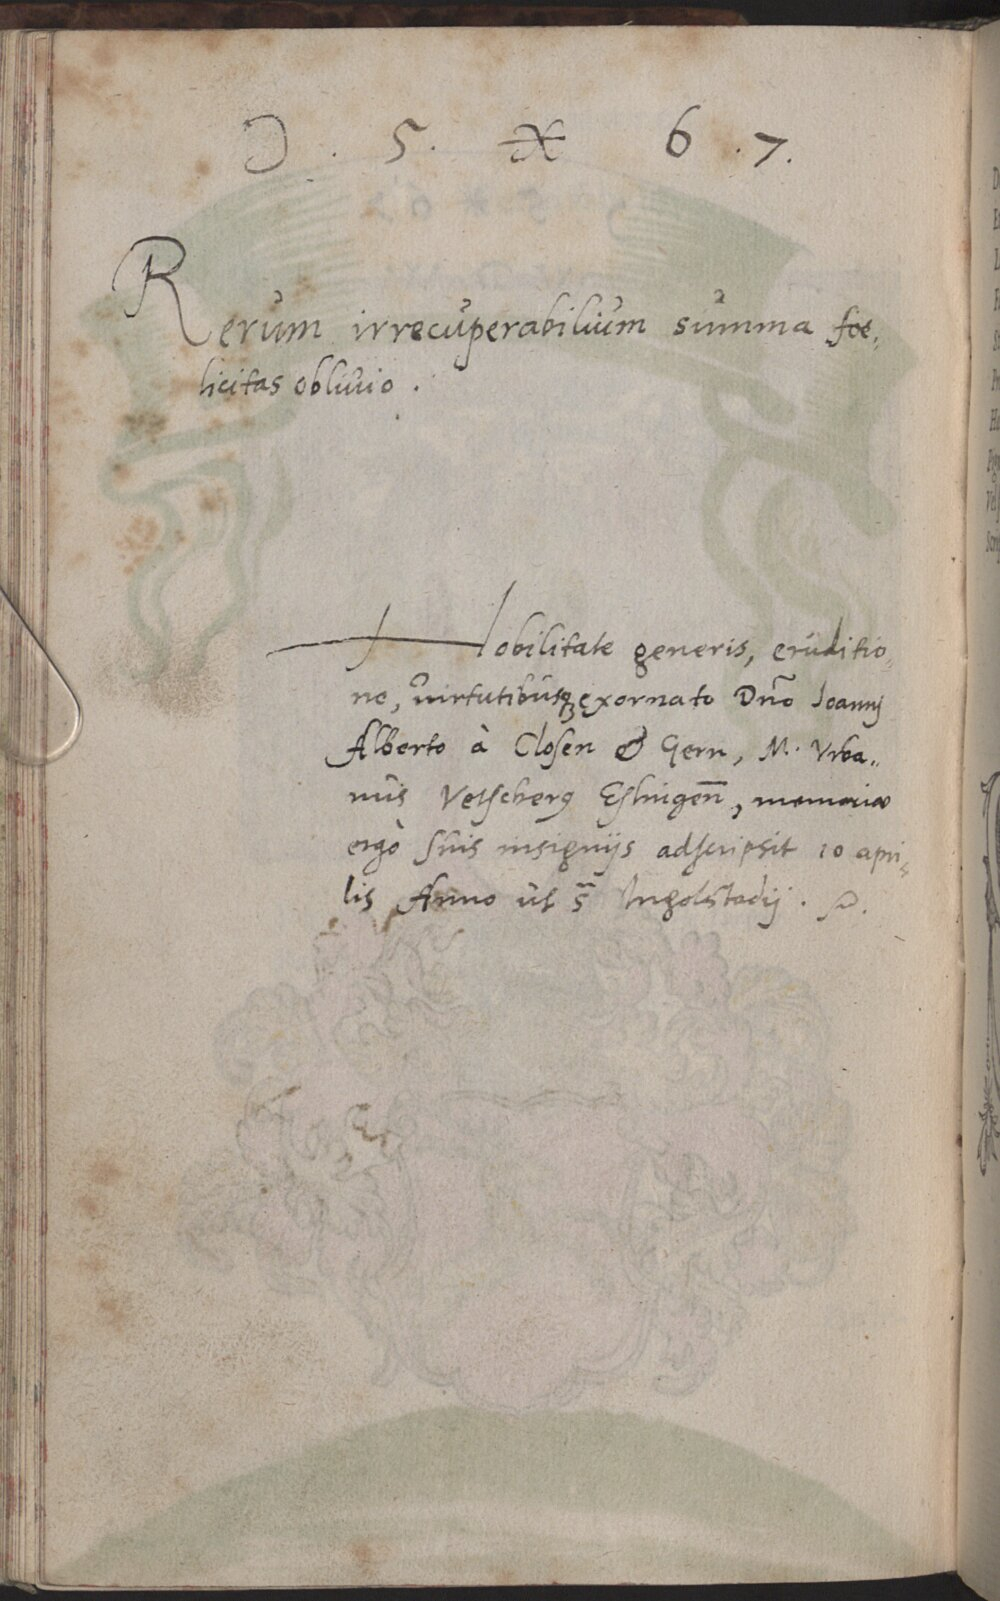 1 . 5 . * 6 . 7 .
Rerum irrecuperabilium summa foe„
licitas oblivio .
Nobilitate generis, eruditio„
ne, virtutibusq; exornato Dño Ioannj
Alberto à Closen & Gern, M. Vrba„
nus Vetscherg Eslingeñ, memoriæ
ergò suis insignijs adscripsit 10 apri„
lis Anno ut s̃ Ingolstadij .